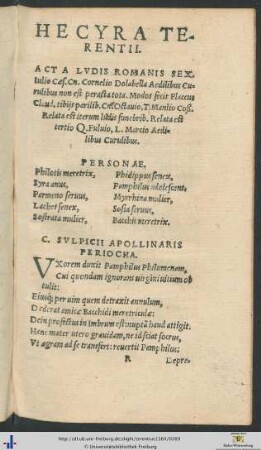 HECYRA TE-
RENTII.
ACTA LVDIS ROMANIS SEX.
Iulio Cæs. Cn. Cornelio Dolabella Aedilibus Cu-
rulibus non est peracta tota. Modos fecit Flaccus
Claud. tibijs parilib. Cn. Octauio, T. Manlio Coss.
Relata est iterum ludis funebrib. Relata est
tertio Q. Fuluio, L. Marcio Aedi-
libus Curulibus.
PERSONAE.
Philotis meretrix, Phidippus senex,
Syra anus, Pamphilus adolescens,
Parmeno seruus, Myrrhina mulier,
Laches senex, Sosia seruus,
Sostrata mulier, Bacchis meretrix.
C. SVLPICII APOLLINARIS
PERIOCHA.
VXorem duxit Pamphilus Philumenam,
Cui quondam ignorans uirgini uitium ob
tulit:
Eiusq; per uim quem detraxit annulum,
Dederat amicæ Bacchidi meretriculæ:
Dein profectus in Imbrum est: nuptā haud attigit.
Hanc mater utero grauidam, ne id sciat socrus,
Vt ægram ad se transfert: reuertit Pamphilus:
R Depre-
http://dl.ub.uni-freiburg.de/diglit/terentius1560/0269
© Universitätsbibliothek Freiburg